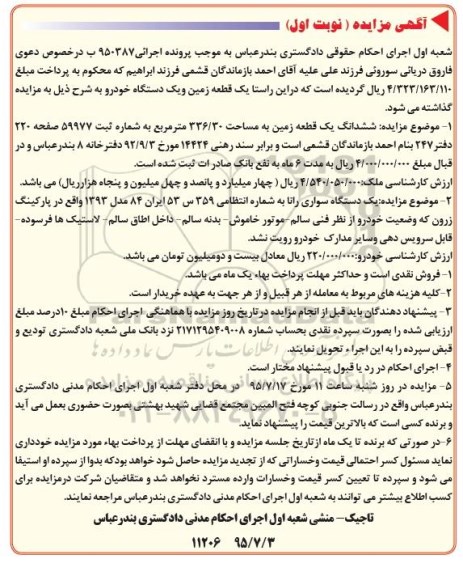 آگهی مزایده ( نوبت اول )
شعبه اول اجرای احکام حقوقی دادگستری بندرعباس به موجب پرونده اجرائی۹۵۰۳۸۷ ب درخصوص دعوی
فاروق دریائی سوروئی فرزند علی علیه آقای احمد بازماندگان قشمی فرزند ابراهیم که محکوم به پرداخت مبلغ
۴/۳۲۳/۱۶۳/۱۱۰ ریال گردیده است که دراین راستا یک قطعه زمین ویک دستگاه خودرو به شرح ذیل به مزایده
گذاشته می شود.
۱- موضوع مزایده: ششدانگ یک قطعه زمین به مساحت ۳۳۶/۳۰ مترمربع به شماره ثبت ۵۹۹۷۷ صفحه ۲۲۰
دفتر۲۴۷ بنام احمد بازماندگان قشمی است و برابر سند رهنی ۱۴۴۲۴ مورخ ۹۲/۹/۳ دفترخانه ۸ بندرعباس و در
قبال مبلغ ۴/۰۰۰/۰۰۰/۰۰۰ ریال به مدت ۶ ماه به نفع بانک صادرات ثبت شده است.
ارزش کارشناسی ملک:۴/۵۴۰/۰۵۰/۰۰۰ ریال ( چهار میلیارد و پانصد و چهل میلیون و پنجاه هزارریال) می باشد.
۲- موضوع مزایده:یک دستگاه سواری رانا به شماره انتظامی ۳۵۹ س ۵۳ ایران ۸۴ مدل ۱۳۹۳ واقع در پارکینگ
زرون که وضعیت خودرو از نظر فنی سالم- موتور خاموش- بدنه سالم- داخل اطاق سالم- لاستیک ها فرسوده-
قابل سرویس دهی وسایر مدارک خودرو رویت نشد.
ارزش کارشناسی خودرو:۲۲۰/۰۰۰/۰۰۰ ریال معادل بیست و دومیلیون تومان می باشد.
۱- فروش نقدی است و حداکثر مهلت پرداخت بهاء یک ماه می باشد.
۲-کلیه هزینه های مربوط به معامله از هر قبیل و از هر جهت به عهده خریدار است.
۳- پیشنهاد دهندگان باید قبل از انجام مزایده در تاریخ روز مزایده با هماهنگی اجرای احکام مبلغ ۱۰درصد مبلغ
ارزیابی شده را بصورت سپرده نقدی بحساب شماره ۲۱۷۱۲۹۵۴۰۹۰۰۸ نزد بانک ملی شعبه دادگستری تودیع و
قبض سپرده را به این اجراء تحویل نمایند.
۴- اجرای احکام در رد یا قبول پیشنهاد مختار است.
۵- مزایده در روز شنبه ساعت ۱۱ مورخ ۹۵/۷/۱۷ در محل دفتر شعبه اول اجرای احکام مدنی دادگستری
بندرعباس واقع در رسالت جنوبی کوچه فتح المبین مجتمع قضایی شهید بهشتی بصورت حضوری بعمل می آید
و برنده کسی است که بالاترین قیمت را پیشنهاد نماید.
۶-در صورتی که برنده تا یک ماه از تاریخ جلسه مزایده و با انقضای مهلت از پرداخت بهاء مورد مزایده خودداری
نماید مسئول کسر احتمالی قیمت وخساراتی که از تجدید مزایده حاصل شود خواهد بودکه بدوا از سپرده او استیفا
می شود و سپرده تا تعیین کسر قیمت وخسارات وارده مسترد نخواهد شد و متقاضیان شرکت درمزایده برای
کسب اطلاع بیشتر می توانند به شعبه اول اجرای احکام مدنی دادگستری بندرعباس مراجعه نمایند.
تاجیک- منشی شعبه اول اجرای احکام مدنی دادگستری بندرعباس
۹۵/۷/۳ ۱۱۲۰۶